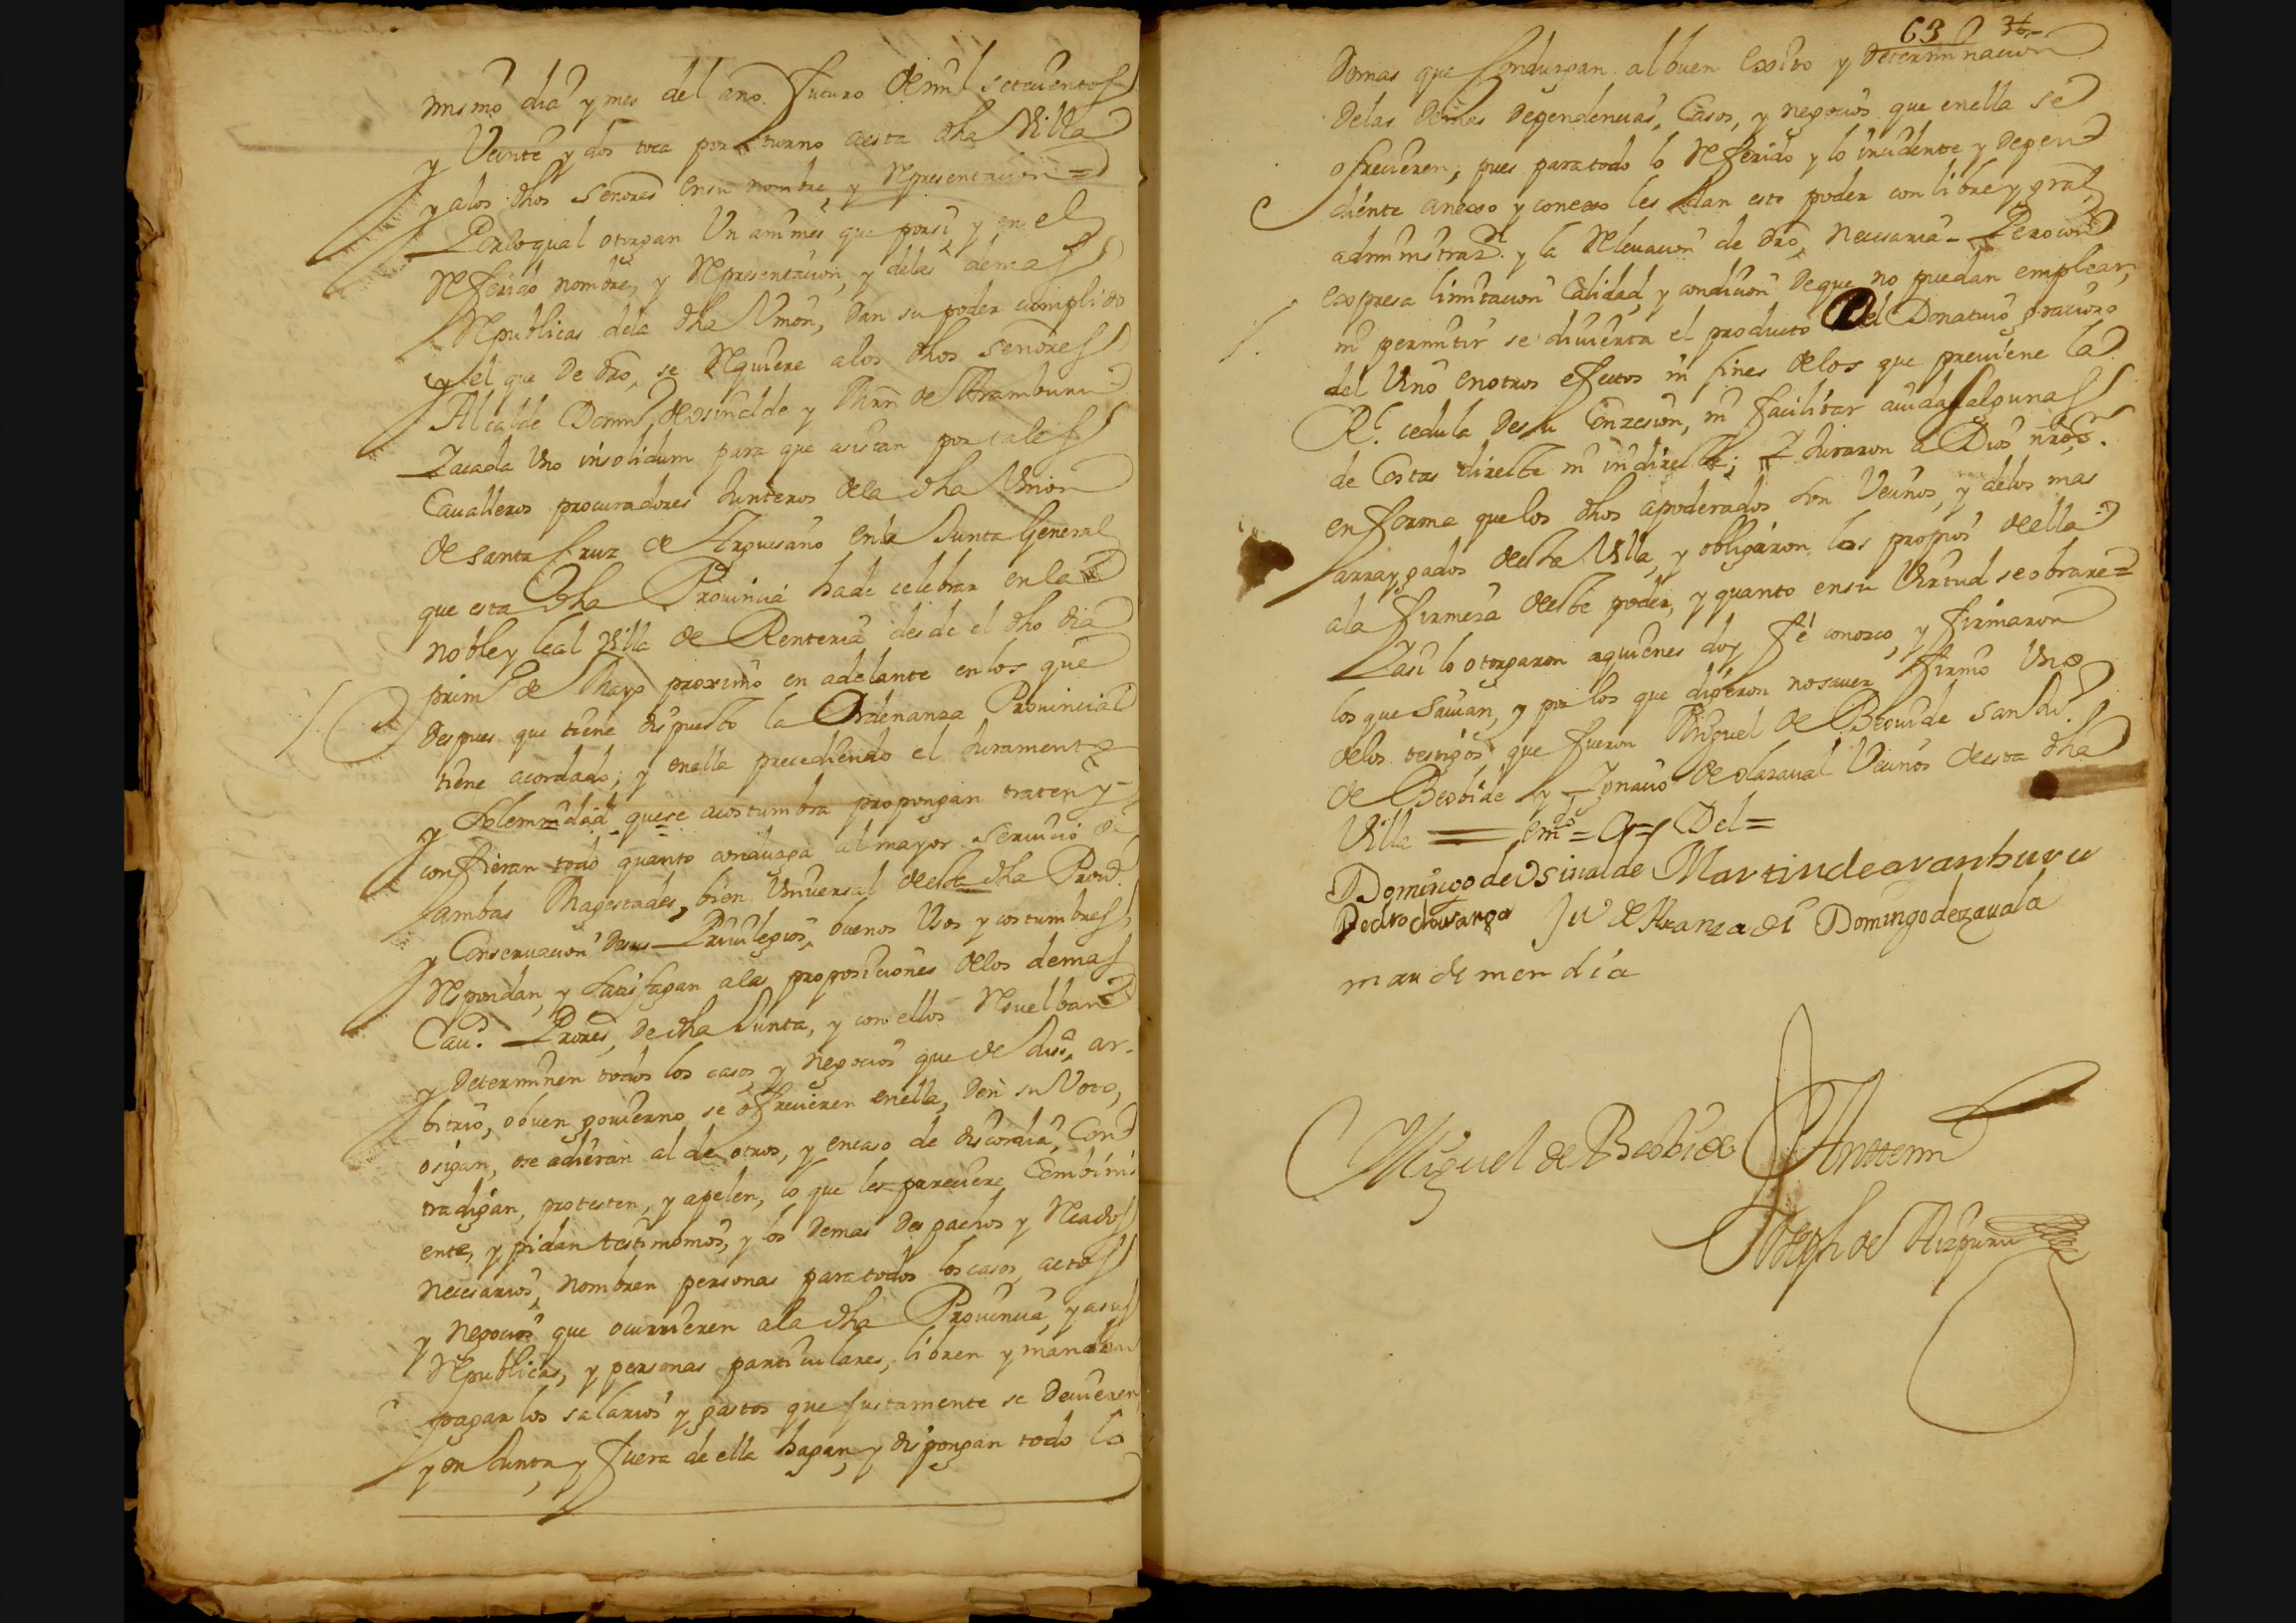 mismo dia y mes del año futuro de mil setecientos
y Veinte y dos toca por turno a esta dha Villa
y alos dhos señores en su nombre, y Representacion =
Porloqual otorgan Unanimes que porsi y en el
Referido nombre, y Representacion, y delas demas
Republicas dela dha Union, dan su poder cumplido
y el que de dro, se Requiere alos dhos señores
Alcalde Domº de osinalde y Mrn de Aramburu
Yacada Uno insolidum para que asistan por tales
Caualleros procuradores Junteros dela dha Union
de santa Cruz de Arguisano en la Junta General
que esta dha Prouincia hade celebrar en la
noble y leal Villa de Renteria desde el dho dia
primº de Mayo proximo en adelante en los que
despues que tiene dispuesto la Ordenanza Prouincial
tiene acordado; y enella precediendo el Juramento
y solemnidad quese acostumbra propongan traten y
confieran todo quanto conduzga al mayor seruicio de
ambas Magestades, bien Uniuersal deesta dha Prouª.
y Conseruacion desus Priuilegios, buenos Usos y costumbres,
Respondan, y satisfagan alas proposiciones delos demas
Cauº. Prores, de dha Junta, y con ellos Resuelban
y determinen todos los casos y negocios que de Jusª, ar-
bitrio, obuen gouierno se ofrecieren enella, den su Voto,
osigan, ose adieran al de otros, y encaso de discordia, Con
tradigan, protesten, y apelen, lo que les pareciere Combini
ente, y pidan testimonios, y los demas despachos y Recados
necesarios, nombren personas paratodos los casos, actos
y negocios que ocurrieren ala dha Prouincia, y asus
Republicas, y personas particulares, libren y manden
pagar los salarios y gastos que justamente se deuieren
y en Junta y fuera de ella hagan, y dispongan todo lo
63
demas que Conduzgan albuen Exsito y determinacion
delas demas dependencias, Casos, y negocios que enella se
ofrecieren, pues paratodo lo Referido y lo incidente y depen
diente anexso y conexo les dan este poder con libre y gral
administraon. y la Releuacion de dro, necesaria - Pero con
expresa limitacion Calidad, y condicion deque no puedan emplear,
ni permitir se diuierta el producto Del Donatiuo gracioso
del Vino enotros efectos ni fines delos que preuiene la
Rl. cedula desu Conzesion, ni facilitar aiudas algunas
de Costas directe ni indirecte; Y Juraron a Dios nro sr.
en forma quelos dhos apoderados son Vecinos, y delos mas
arraygados deesta Villa, y obligaron los propios deella
ala firmesa deeste poder, y quanto ensu Virtud seobrare =
Yasi lo otorgaron aquienes doy fé conosco, y firmaron
los que sauian, y por los que dijeron nosauer firmo Uno
delos testigos que fueron Miguel de Beouide san Ju.
de Beobide y Ignacio de olazaual Vecinos deesta dha
Villa == emdo = Del =
Domingo de Osinalde Martin de aranburu
Pedro de Domingo de zauala
mendia
Miguel de Beobide Antemi
Joseph de Aizpuru